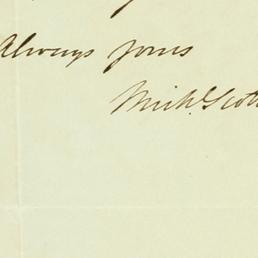 Always yours
Mich. Scott